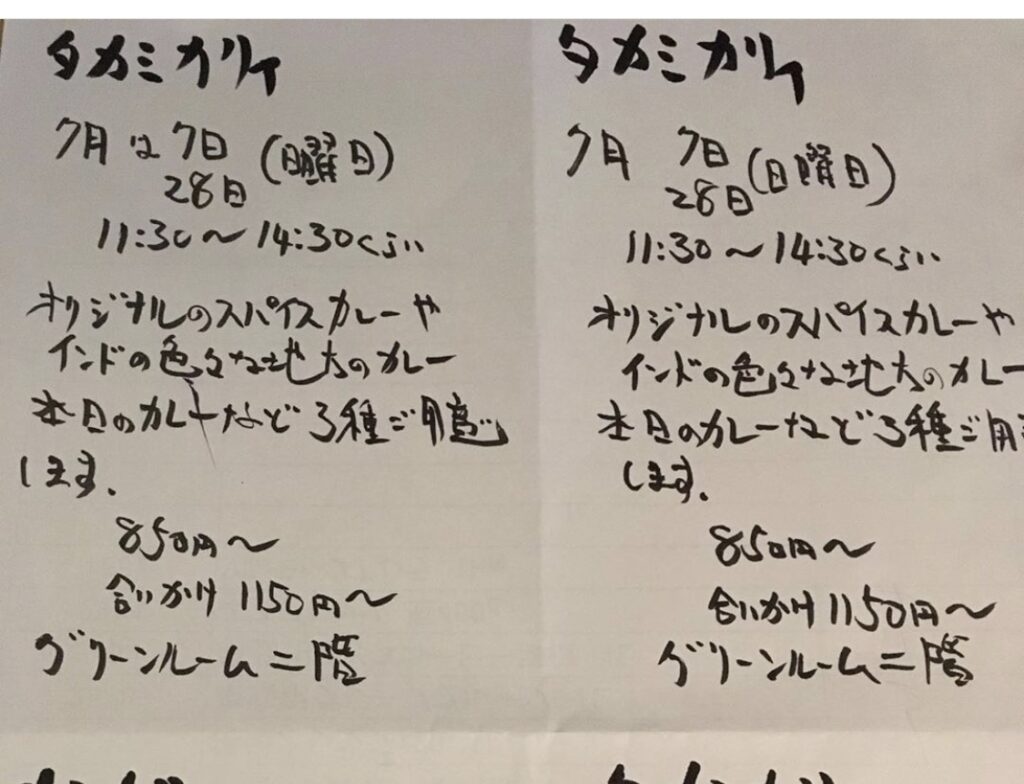 タカミカリイ
7月は7日
28日
(日曜日)
11:30〜14:30くらい
オリジナルのスパイスカレーや
インドの色々な地方のカレー
本日のカレーなど3種ご用意
します.
850円〜
合いがけ 1150円〜
グリーンルーム二階
タカミカリイ
7月 7日
28日
(日曜日)
11:30〜14:30くらい
オリジナルのスパイスカレーや
インドの色々な地方のカレー
本日のカレーなど3種ご用
します.
850円〜
合いがけ 1150円〜
グリーンルーム二階